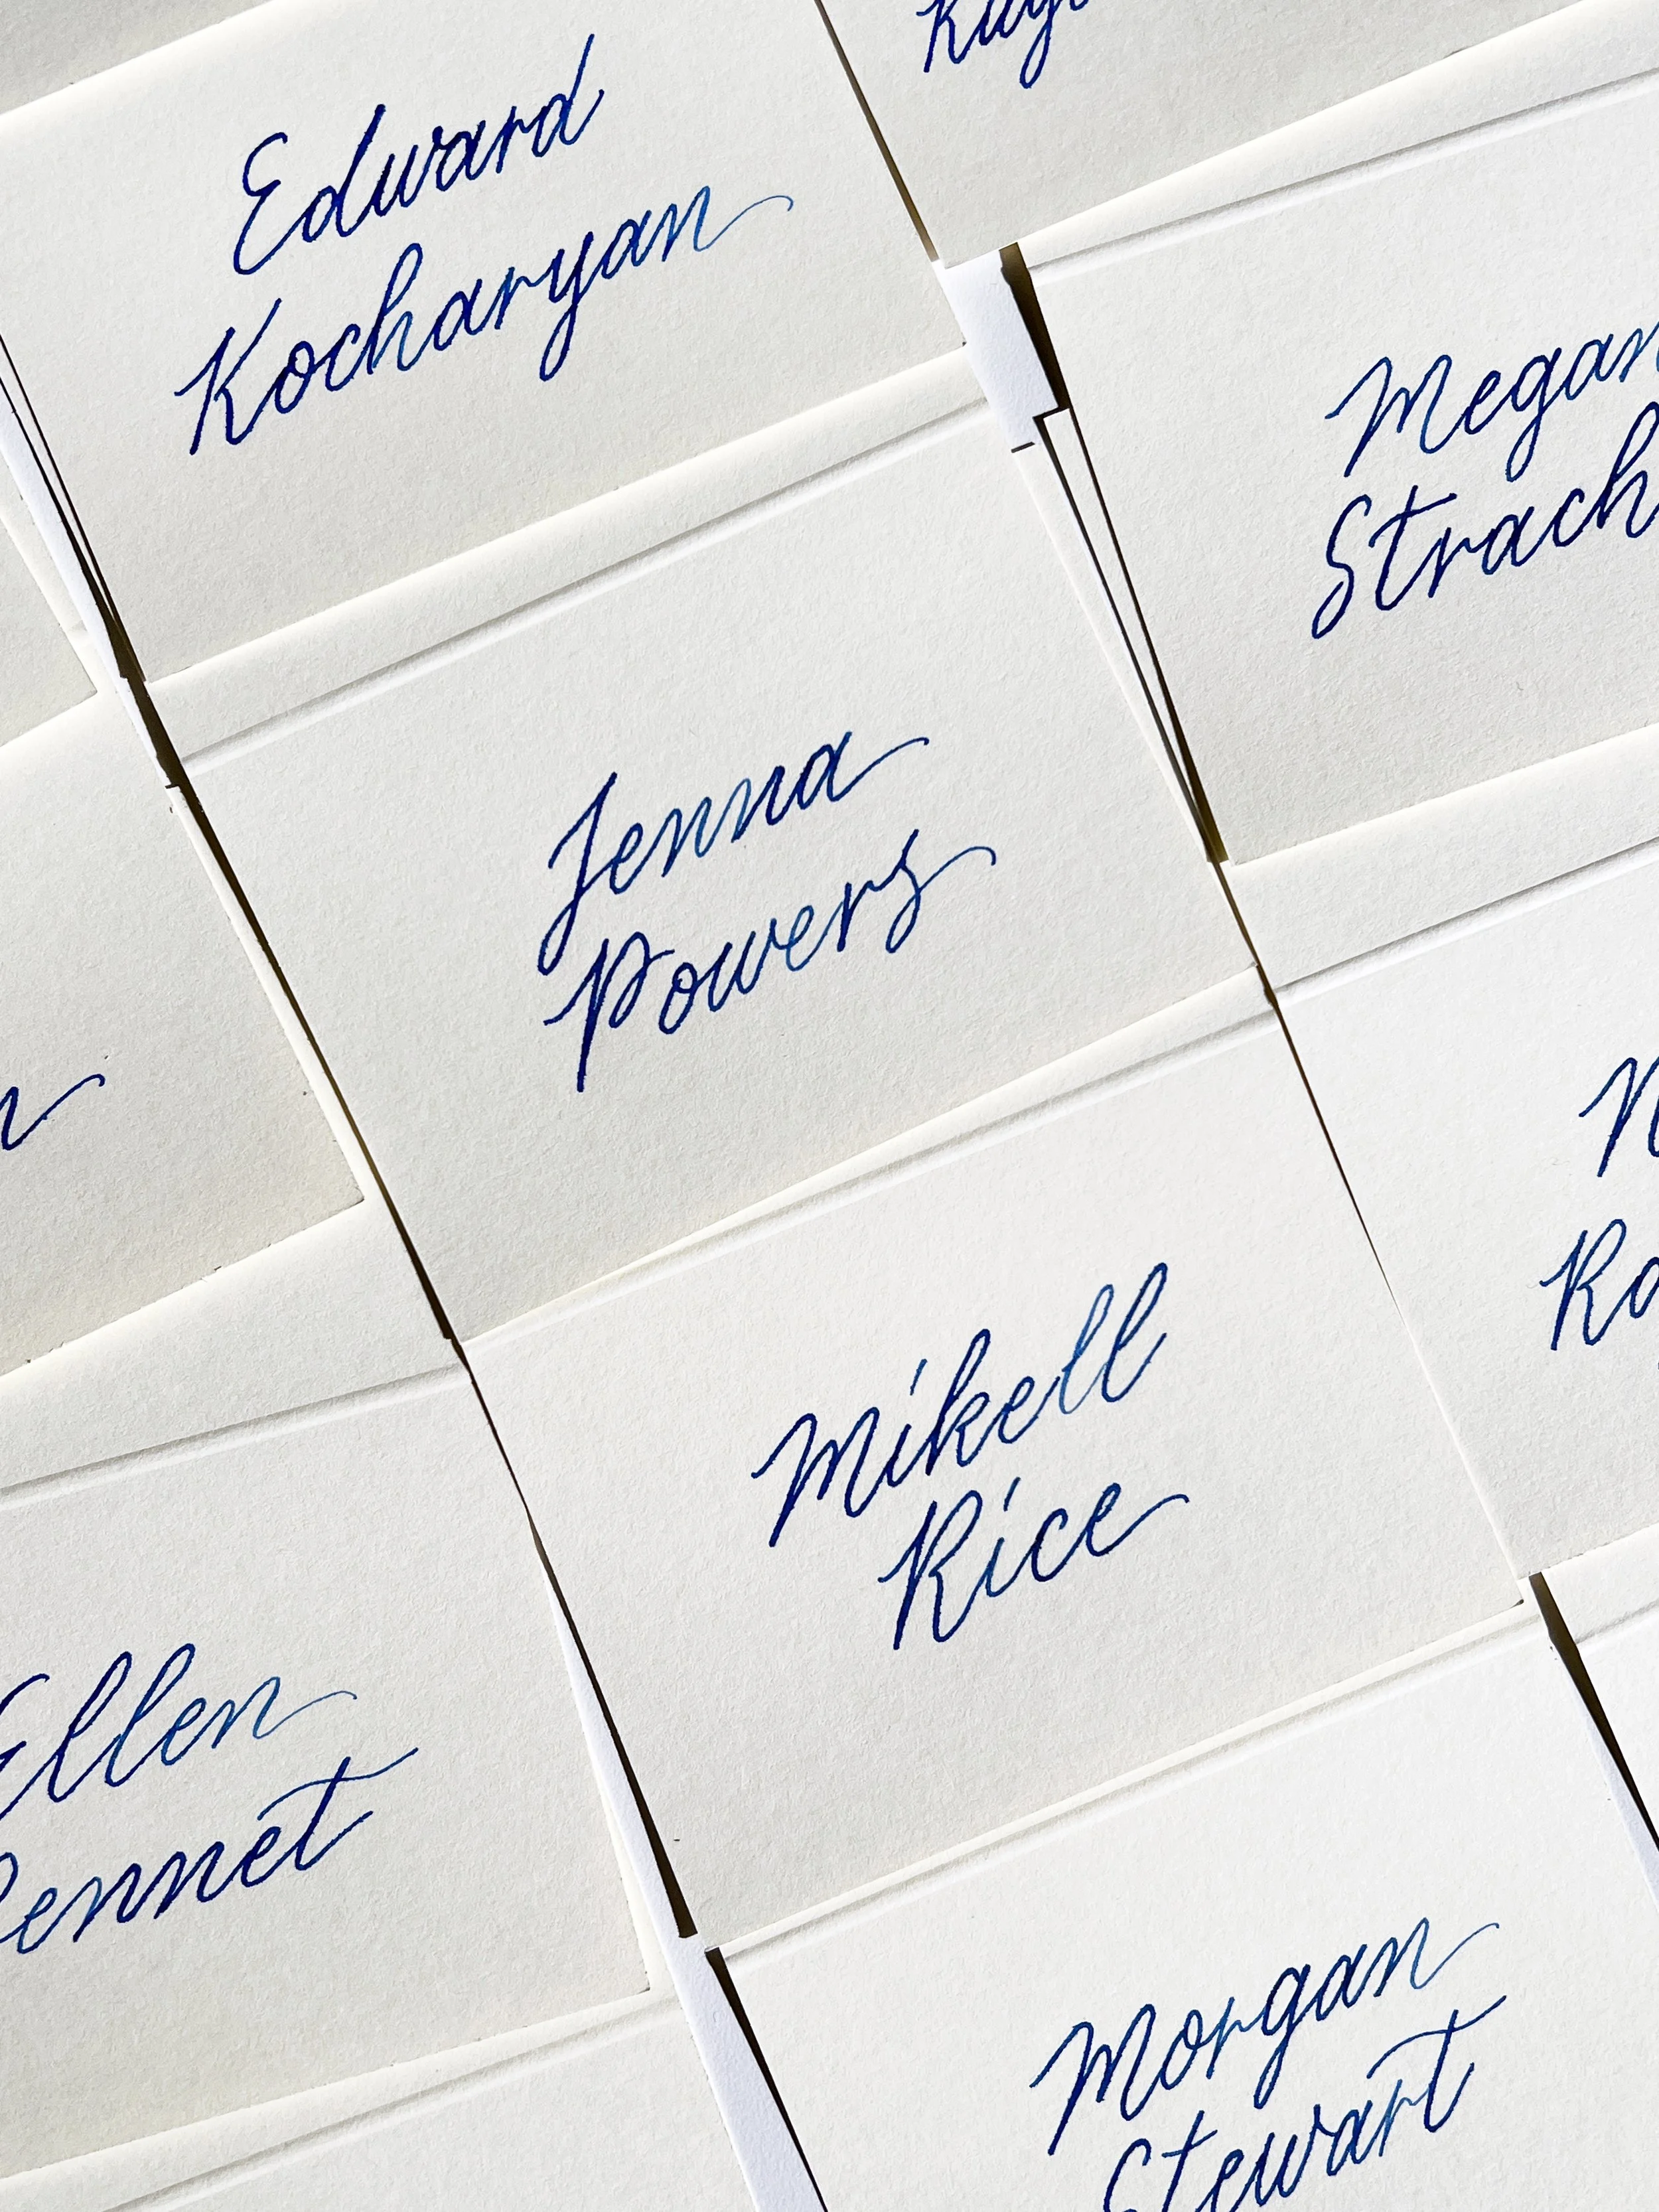 Edward
Kocharyan
Megan
Strach
Jenna
Powers
Mikell
Rice
Ellen
Morgan
Stewart